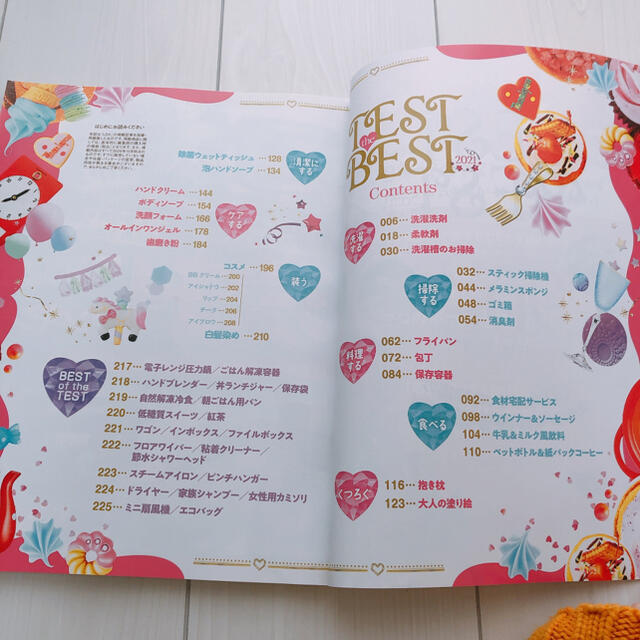 はじめにお読みください
除菌ウェットティッシュ…128
泡ハンドソープ…134
清潔にする
ハンドクリーム…144
ボディソープ…154
洗顔フォーム…166
オールインワンジェル…178
歯磨き粉…184
ケアする
コスメ…196
BBクリーム…200
アイシャドウ…202
リップ…204
チーク…206
アイブロウ…208
白髪染め…210
装う
BEST
of the
TEST
217…電子レンジ圧力鍋/ごはん解凍容器
218…ハンドブレンダー/丼ランチジャー/保存袋
219…自然解凍冷食/朝ごはん用パン
220…低糖質スイーツ/紅茶
221…ワゴン/インボックス/ファイルボックス
222…フロアワイパー/粘着クリーナー/
節水シャワーヘッド
223…スチームアイロン/ピンチハンガー
224…ドライヤー/家族シャンプー/女性用カミソリ
225…ミニ扇風機/エコバッグ
TEST
the
BEST
2021
Contents
洗濯する
006…洗濯洗剤
018…柔軟剤
030…洗濯槽のお掃除
掃除する
032…スティック掃除機
044…メラミンスポンジ
048…ゴミ箱
054…消臭剤
料理する
062…フライパン
072…包丁
084…保存容器
食べる
092…食材宅配サービス
098…ウインナー&ソーセージ
104…牛乳&ミルク風飲料
110…ペットボトル&紙パックコーヒー
くつろぐ
116…抱き枕
123…大人の塗り絵